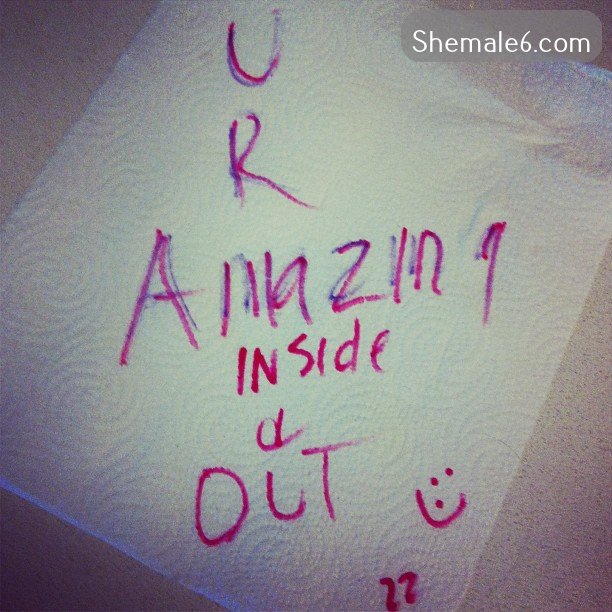 Shemale6.com
U
R
Amazing
INSide
&
OUT :)
22